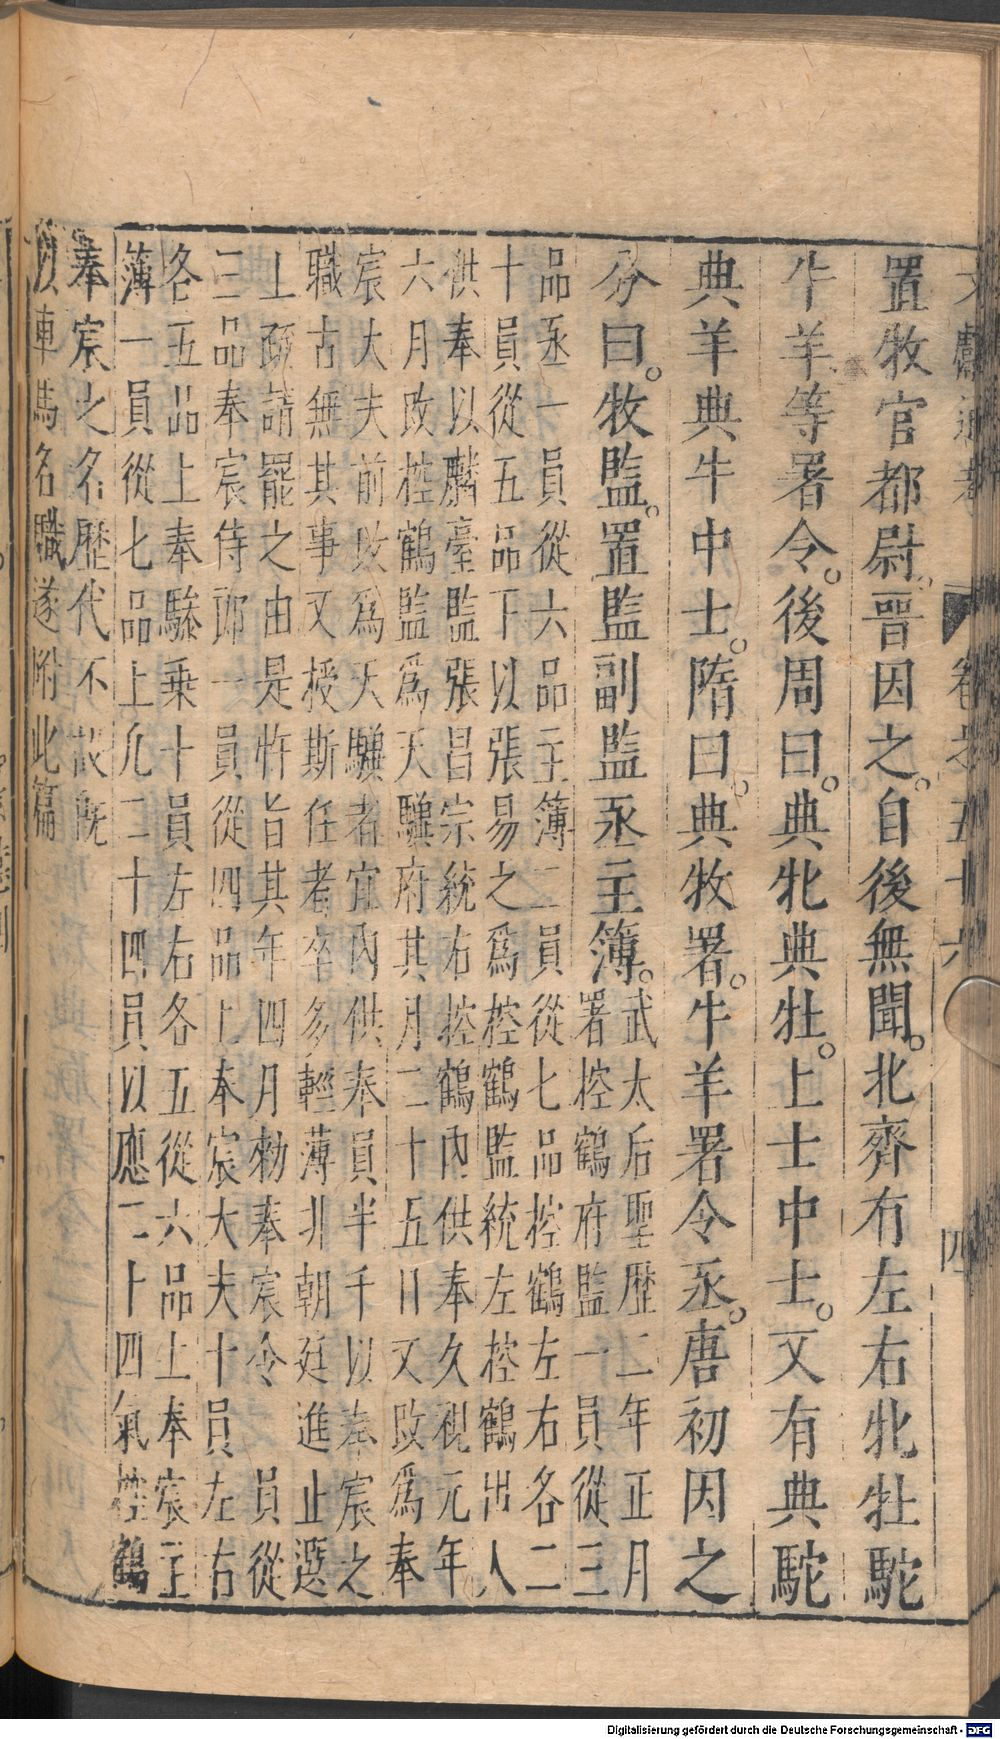 文獻通考 卷之五十六 四
置牧官都尉。晋因之。自後無聞。北齊有左右牝牡駝
牛羊等署令。後周曰。典牝典牡。上士中士。又有典駝
典羊典牛中士。隋曰。典牧署。牛羊署令丞。唐初因之
分曰。牧監。置監副監丞主簿。
武太后聖歷二年正月
署控鶴府監一員從三
品丞一員從六品主簿二員從七品控鶴左右各二
十員從五品下以張易之爲控鶴監統左控鶴出人
供奉以麟臺監張昌宗統右控鶴內供奉久視元年
六月改控鶴監爲天驥府其月二十五日又改爲奉
宸大夫前改爲天驥者宜內供奉員半千以奉宸之
職古無其事又授斯任者率多輕薄非朝廷進止選
上疏請罷之由是忤旨其年四月勑奉宸令 員從
三品奉宸侍郎一員從四品上奉宸大夫十員左右
各五品上奉驂乗十員左右各五從六品上奉宸主
薄一員從七品上凡二十四員以應二十四氣控鶴
奉宸之名歷代不載旣
以車馬名職遂附此篇
Digitalisierung gefördert durch die Deutsche Forschungsgemeinschaft - DFG